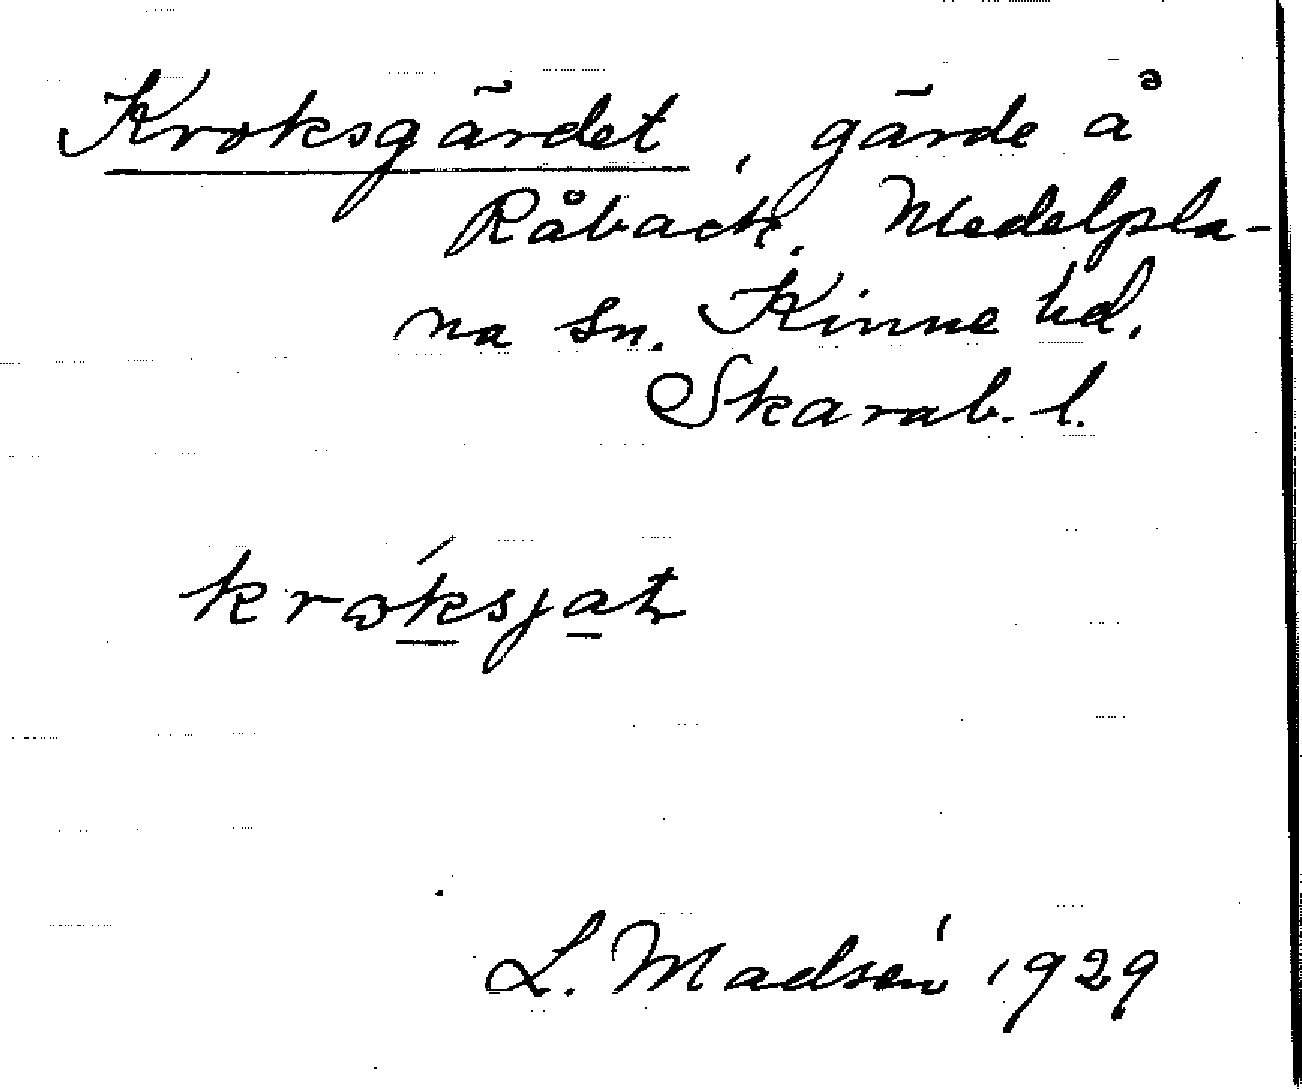 Kroksgärdet, gärde å
Råbäck, Medelpla-
na sn. Kinne hd.
Skarab. l.
króksjat
L. Madsén 1929